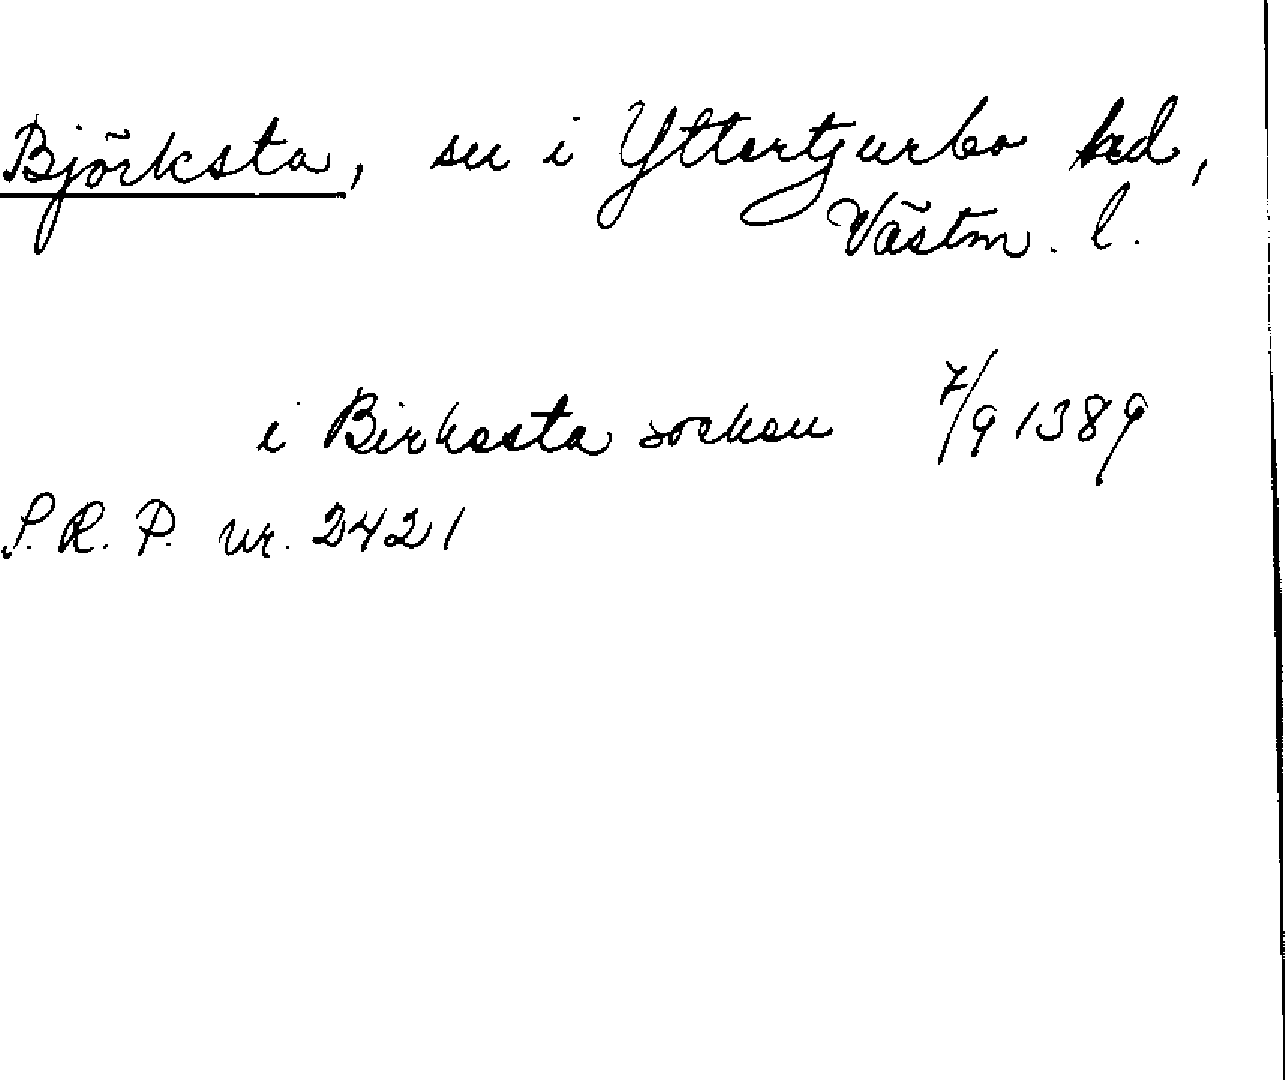 Björksta, sn i Yttertjurbo hd,
Västm. l.
i Birkesta socken 7/9 1389
S.R.P. nr. 2421